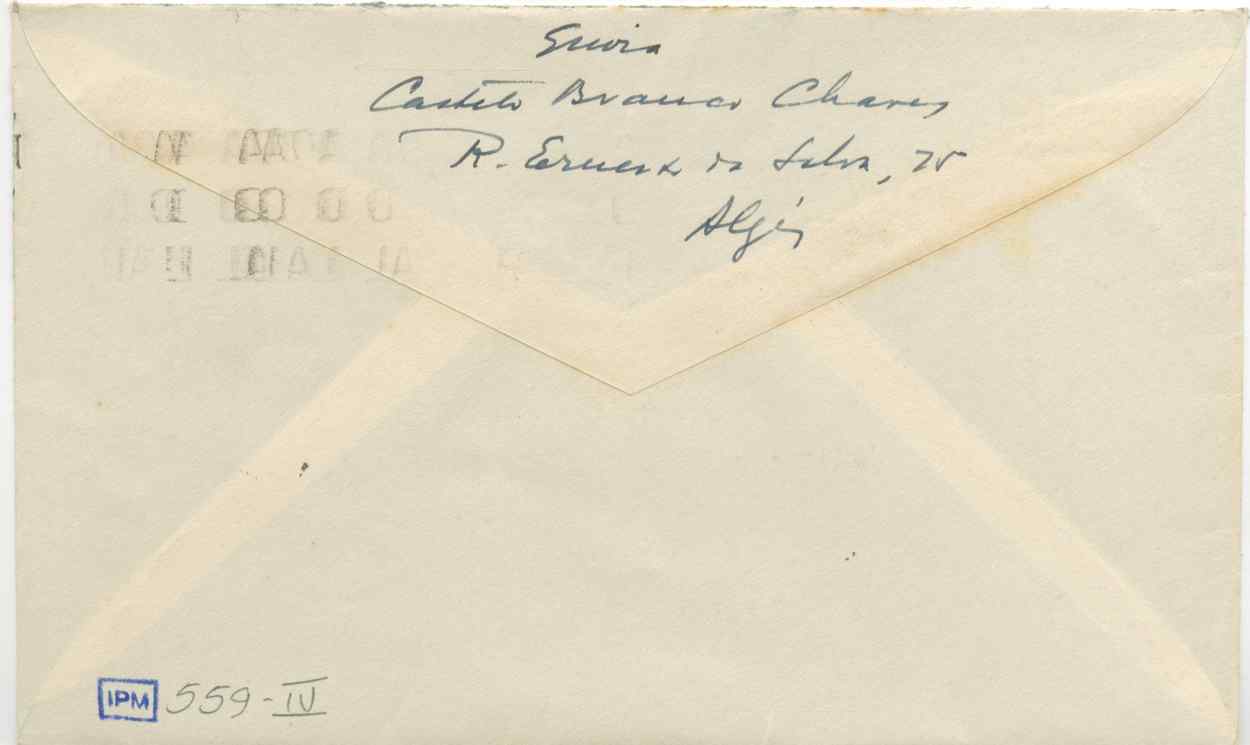 Envia
Castelo Branco Chaves
R. Ernesto da Silva, 75
Algés
IPM 559-IV